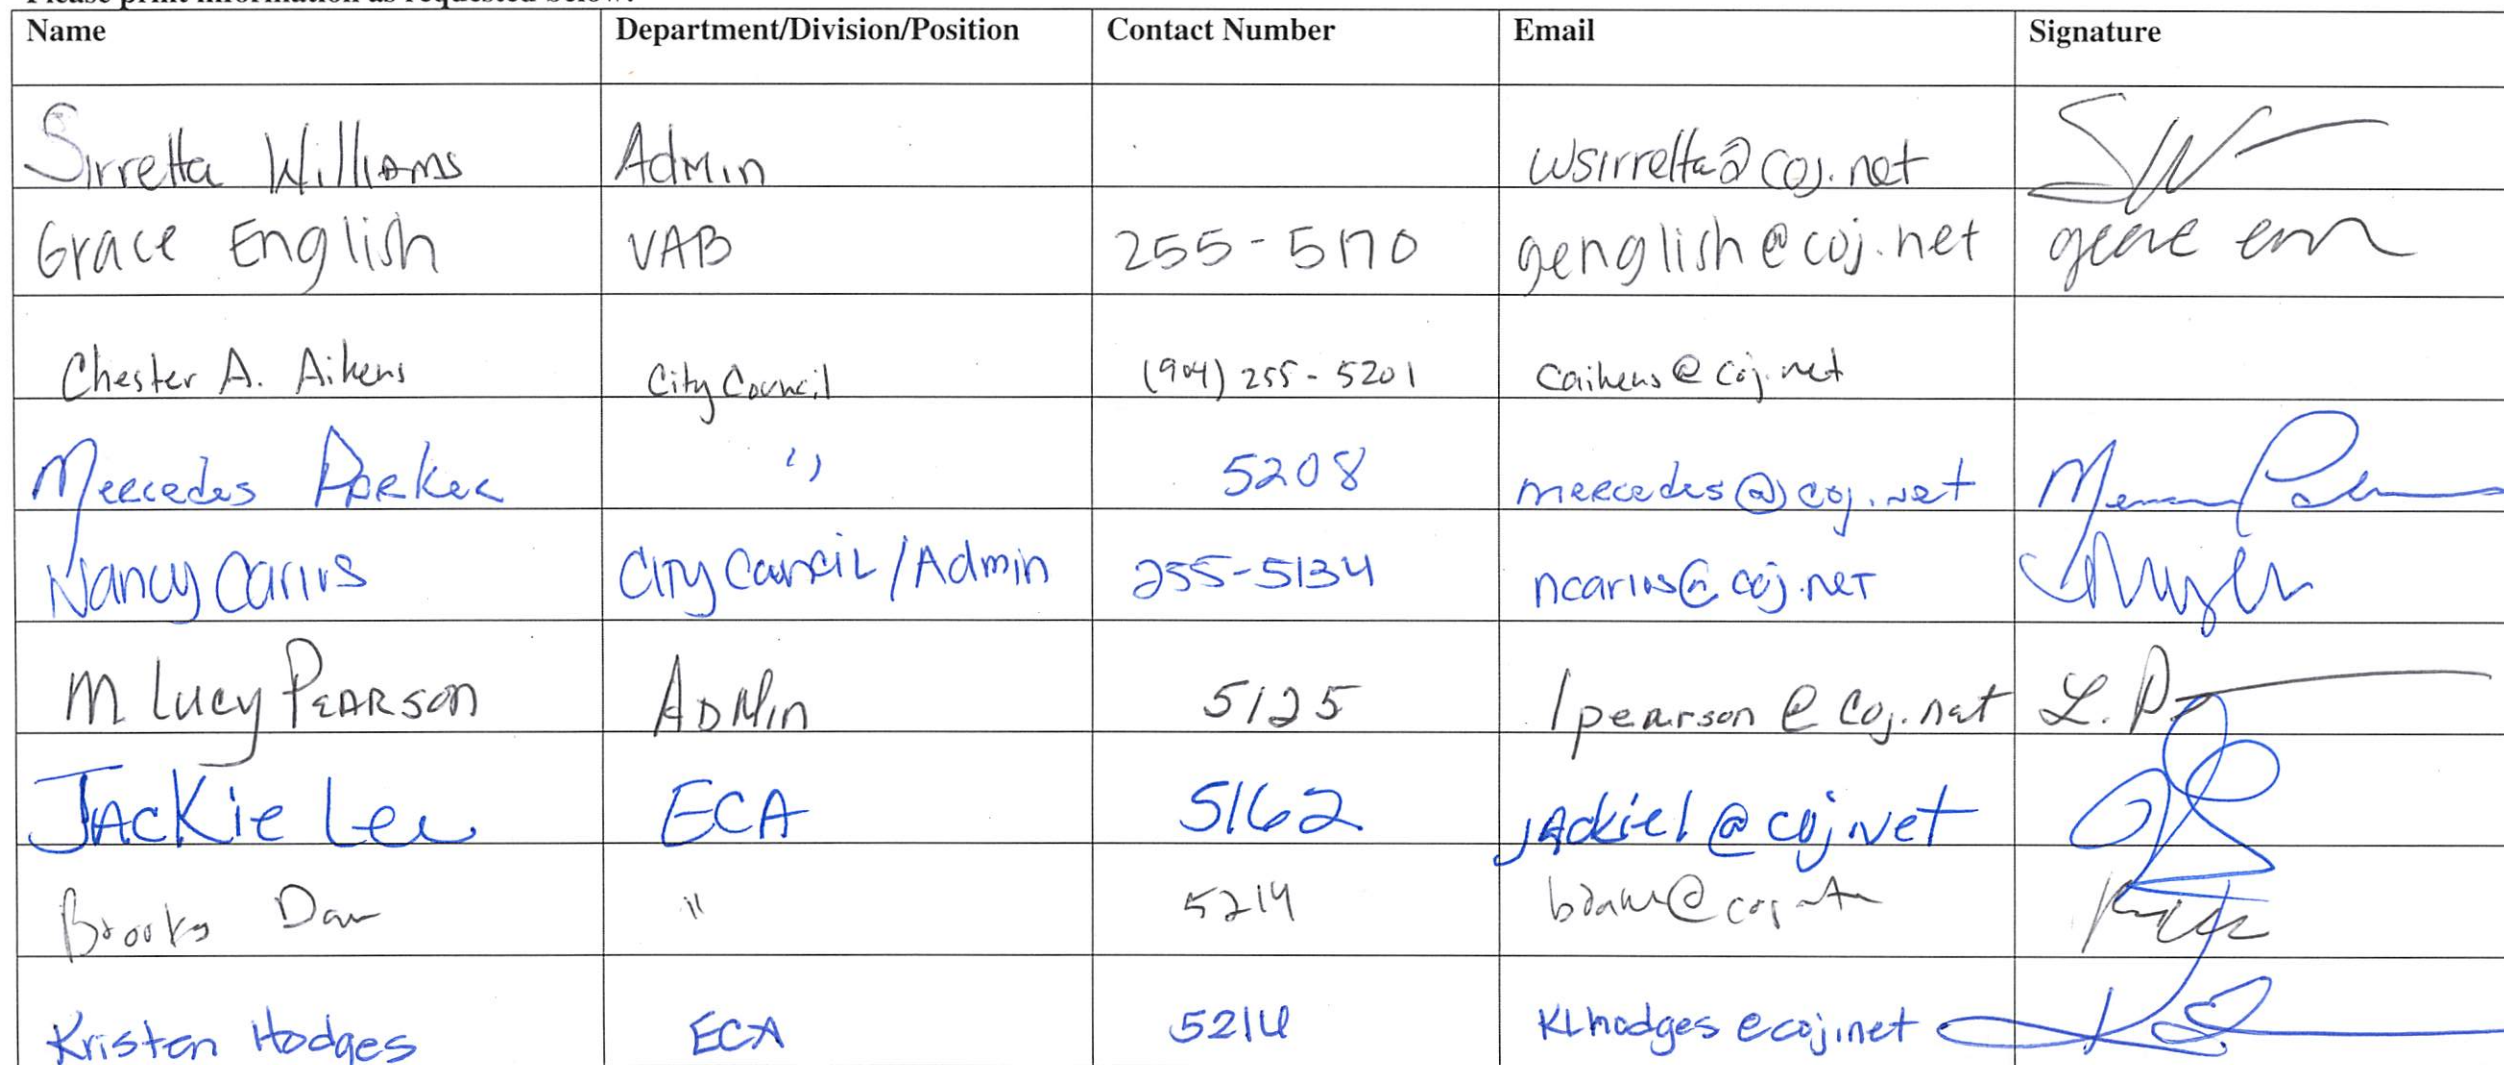 Please print information as requested below.
Name Department/Division/Position Contact Number Email Signature
Sirretta Williams Admin wsirretta@coj.net SW
Grace English VAB 255-5170 genglish@coj.net
Chester A. Aikens City Council (904) 255-5201 caikens@coj.net
Mercedes Parker " 5208 mercedes@coj.net
Nancy Carius City Council/Admin 255-5134 ncarius@coj.net
M. Lucy Pearson Admin 5125 lpearson@coj.net L. P
Jackie Lee ECA 5162 jackiel@coj.net
Brooks " 5214
Kristen Hodges ECA KLhodges@coj.net